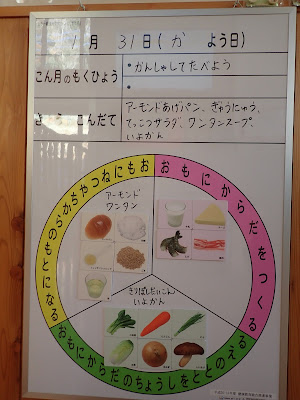 1月 31日(か よう日)
こん月のもくひょう
・かんしゃしてたべよう
・
きょう こんだて
アーモンドあげパン、ぎゅうにゅう、
てっこつサラダ、ワンタンスープ、
いよかん
おもにねつやちからのもとになる
おもにからだをつくる
アーモンド
ワンタン
きりぼしだいこん
いよかん
おもにからだのちょうしをととのえる